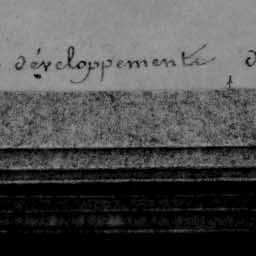 développemente